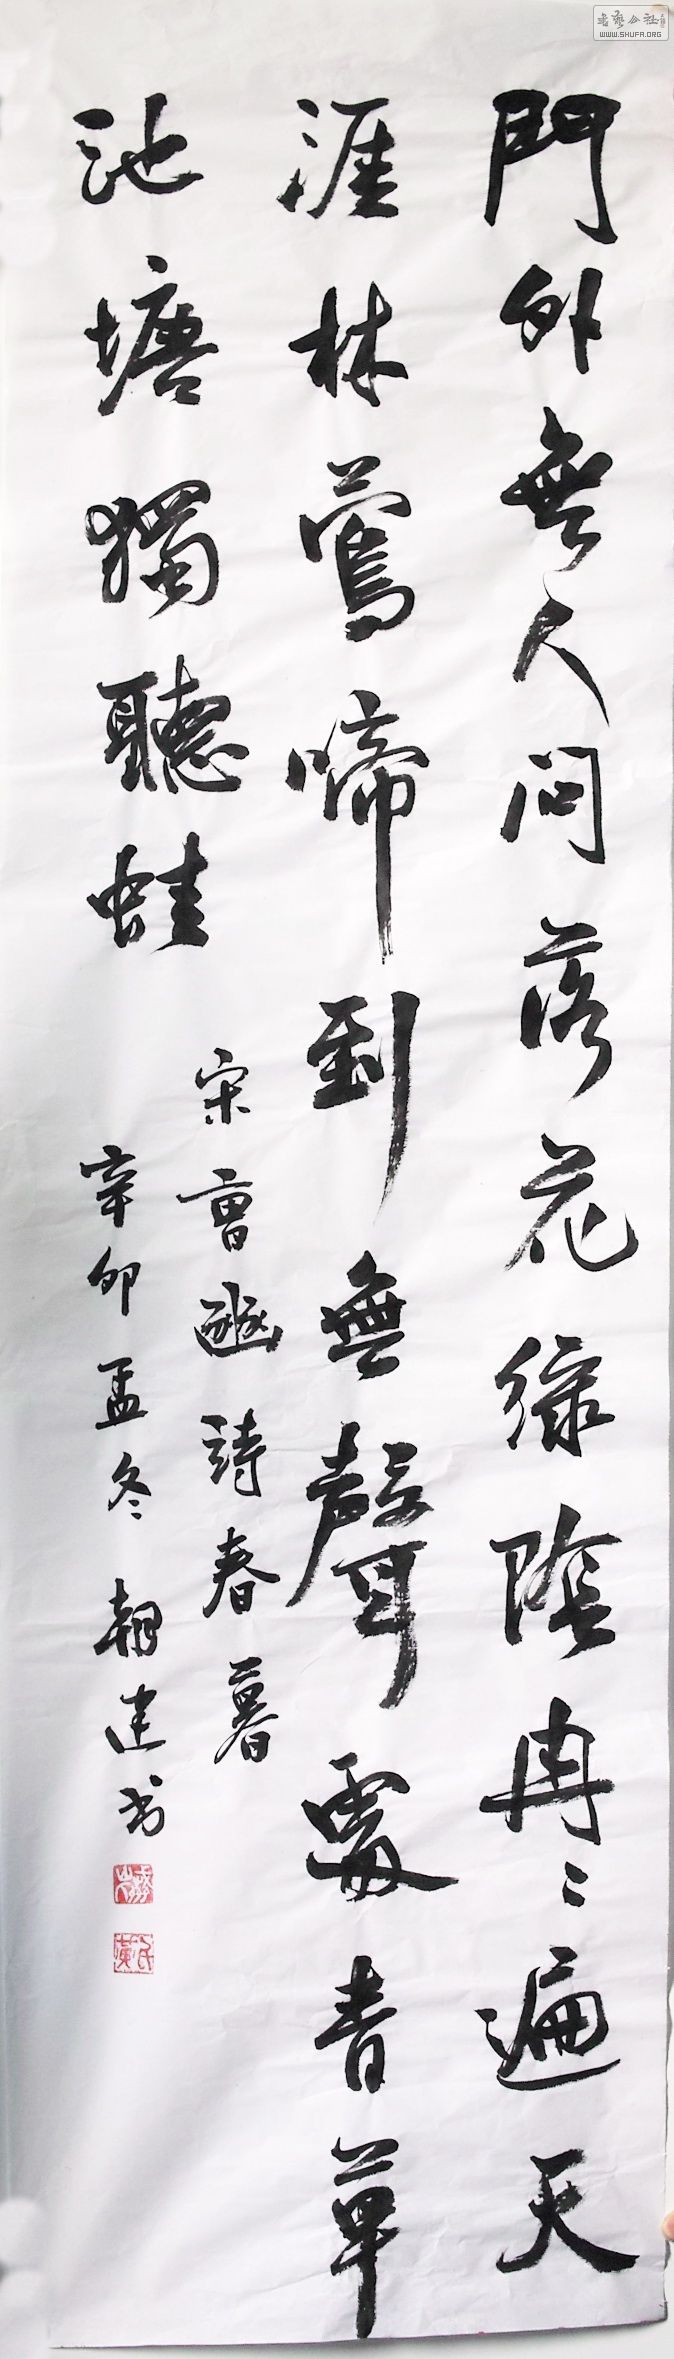 門外無人問落花綠陰冉冉遍天
涯林鶯啼到無聲處青草
池塘獨聽蛙
宋曹豳詩春暮
辛卯孟冬朝建书
WWW.SHUFA.ORG